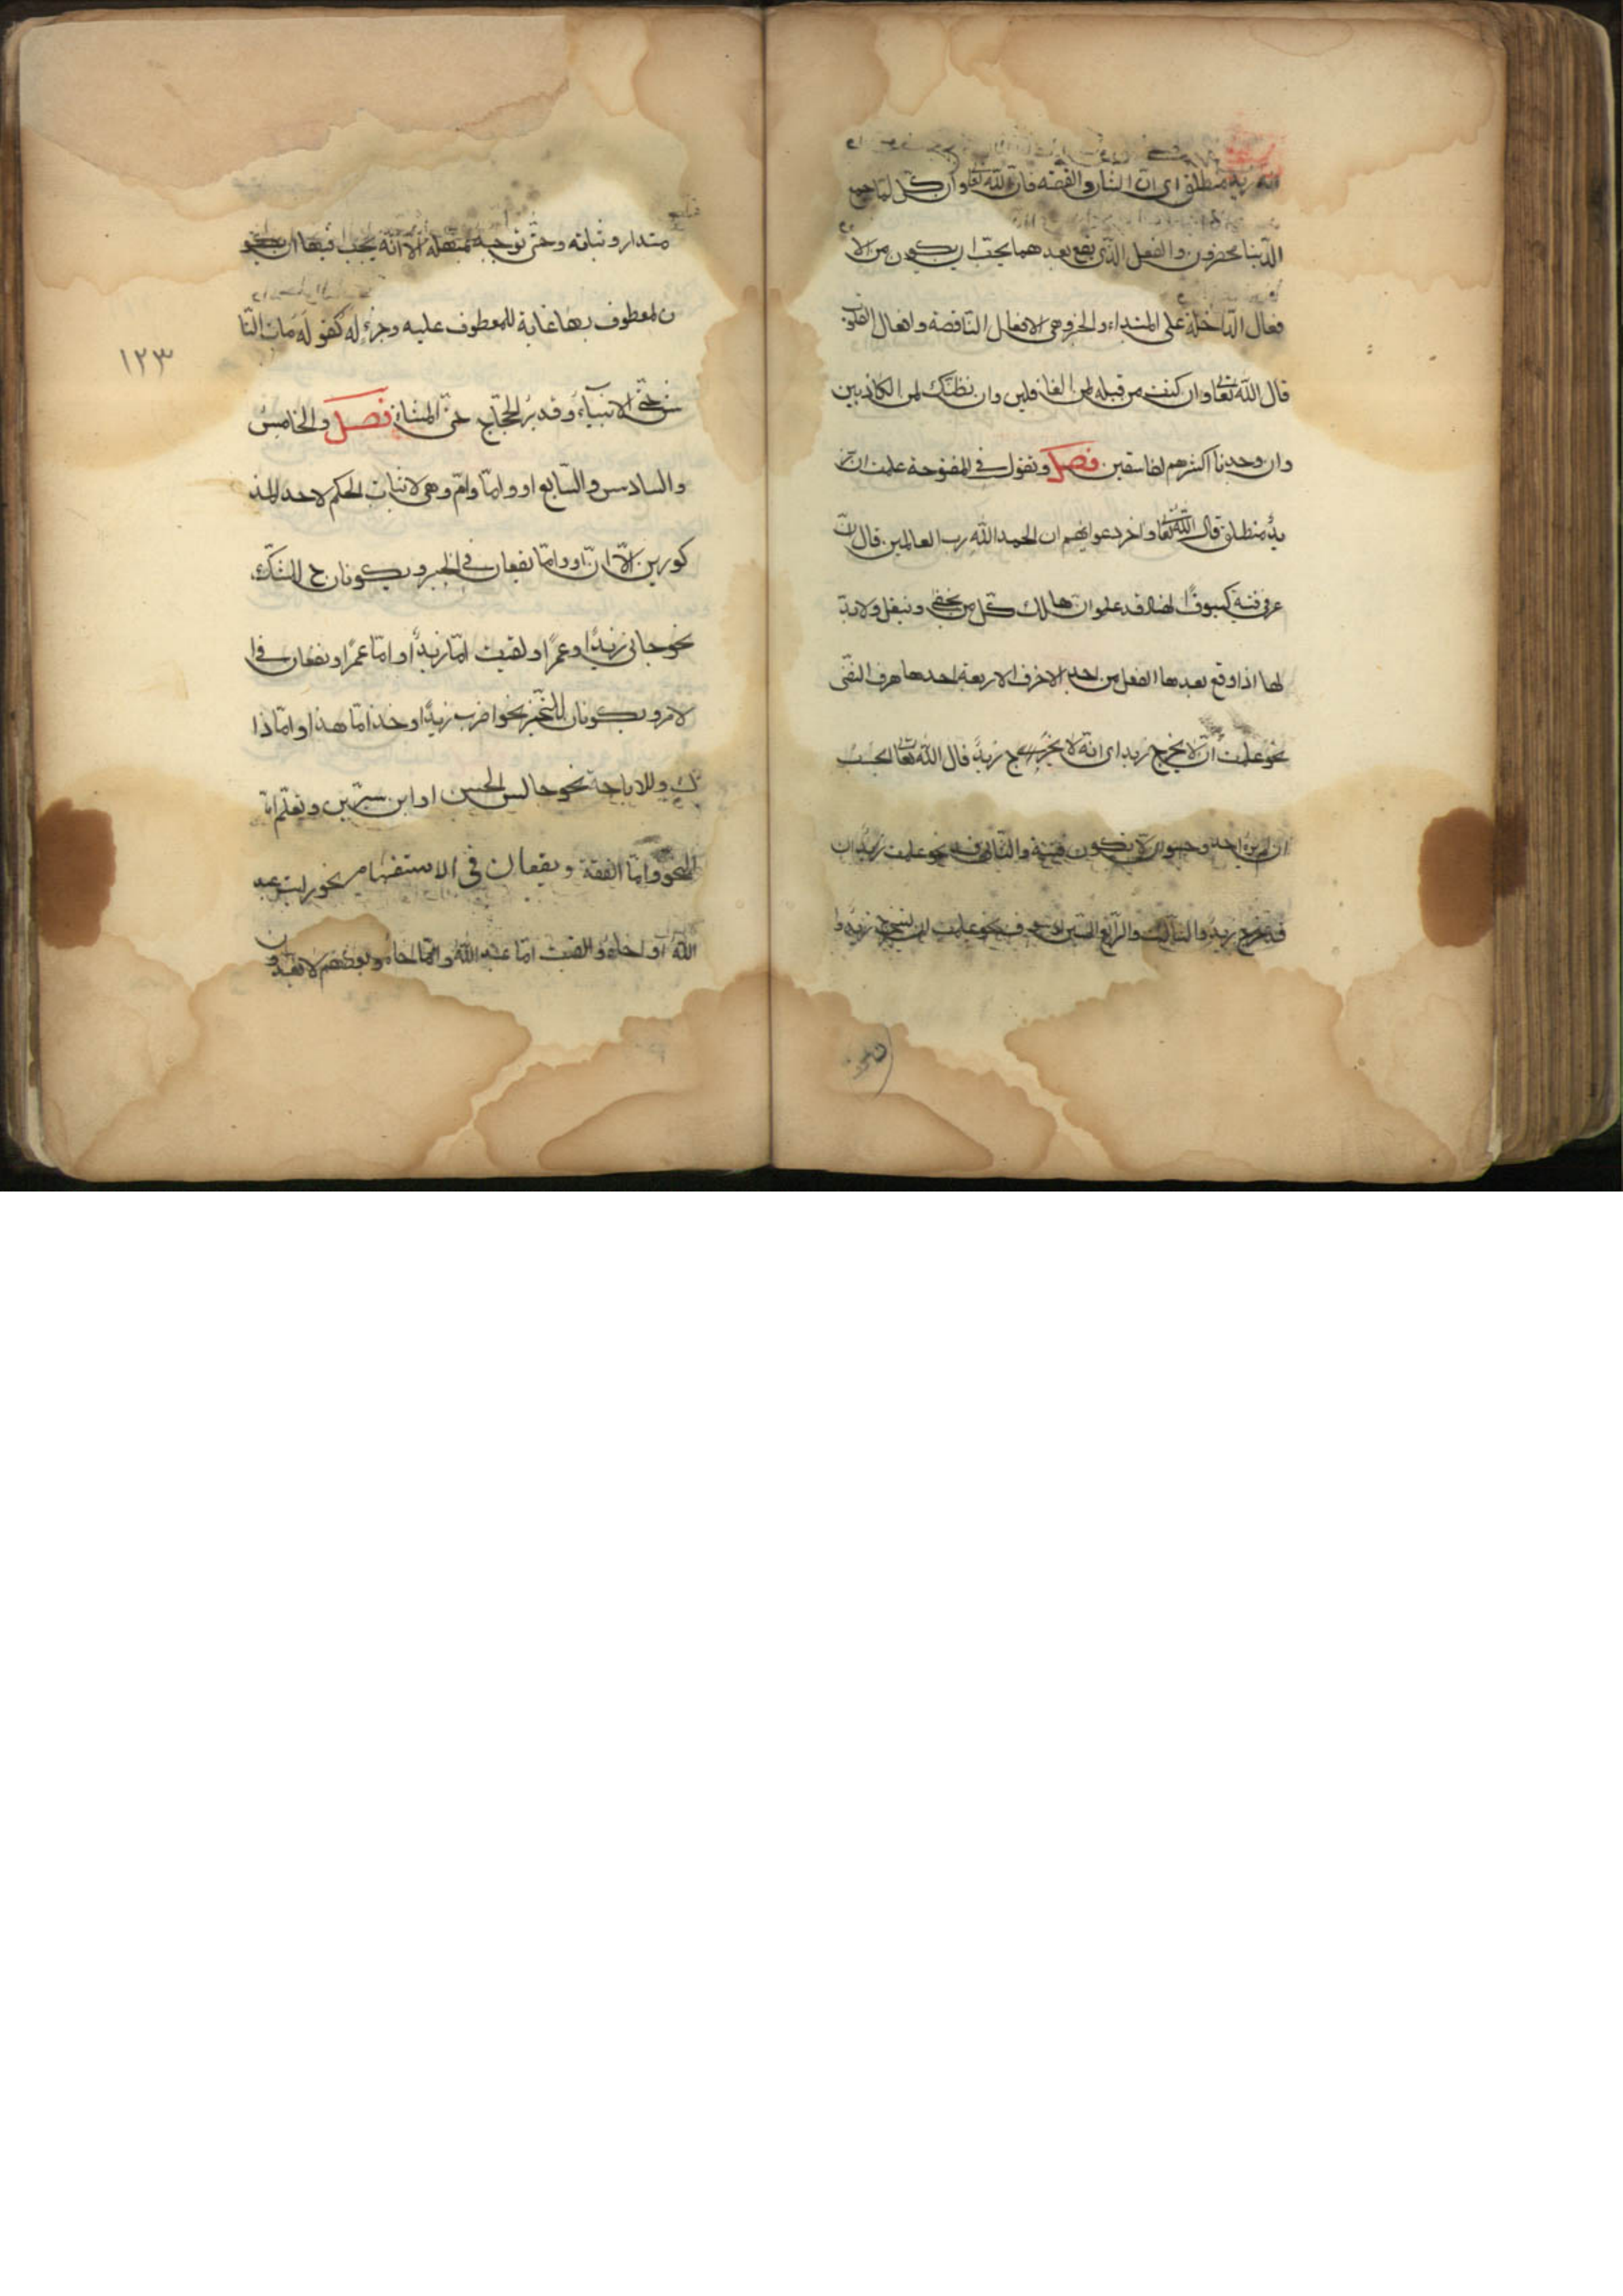 انه زيد منطلق اى ان الشان والقضه قال الله تعا وان كل لما جميع
لدينا محضرون والفعل الذى يقع بعدهما يجب ان يكون من الا
فعال الداخلة على المبتداء والخبر وهى الافعال الناقصة وافعال القلوب
قال الله تعا وان كنت من قبله لمن الغافلين وان نظنك لمن الكاذبين
وان وجدنا اكثرهم لفاسقين فصل وتقول فى المفتوحة علمت ان ز
يد منطلق قال الله تعا واخر دعواهم ان الحمد الله رب العالمين قال
فى فتية كسيوف الهند قد علموا ان هالك كل من يحفى وينعل ولا بد
لها اذا وقع بعدها الفعل من احد الاحرف الاربعة احدها حرف النفى
نحو علمت ان لا يخرج زيد اى انه لا يخرج زيد قال الله تعا ايحسب
ان لم يره احد وحسبوا ان لا تكون فتنة والثانى قد نحو علمت ان
قد يخرج زيد والثالث والرابع السين وسوف نحو علمت ان سيخرج زيد وا
متدار ونباته وحتى توجبه بمهلة الا انه يجب فيها ان يكو
ن المعطوف بها غاية للمعطوف عليه وجزء له كقوله مات النا
س حتى الانبياء وقد برُ الحجاج حتى المشاة فصل والخامس
والسادس والسابع او واما وام وهى لاثبات الحكم لاحد المذ
كورين الا ان او واما تقعان فى الخبر ويكونان ح للشك
نحو جانى زيد او عمرا ولقيت اما زيدا واما عمرا وتقعان فى ا
لامر ويكونان للتخيير نحو اضرب زيدا وخذ اما هذا واما ذا
ك وللاباحة نحو جالس الحسن او ابن سيرين وتعلم اما
النحو واما الفقه ويقعان فى الاستفهام نحو رايت عبد
الله او اخاه والقيت اما عبد الله واما اخاه وبعضهم لا يعد
١٢٣